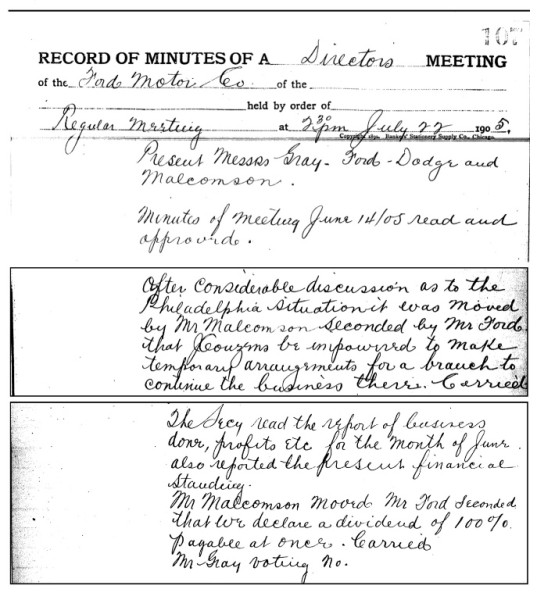 107
RECORD OF MINUTES OF A Directors MEETING
of the Ford Motor Co of the
held by order of
Regular Meeting at 2 30 pm July 22 1905,
Copyright 1890, Bankers' Stationery Supply Co., Chicago.
Present Messrs Gray - Ford - Dodge and
Malcomson.
Minutes of Meeting June 14/05 read and
approved.
After considerable discussion as to the
Philadelphia situation it was moved
by Mr Malcomson seconded by Mr Ford
that J Couzens be impowered to make
temporary arrangements for a branch to
continue the business there. Carried
The Secy read the report of business
done, profits etc for the month of June.
also reported the present financial
standing.
Mr Malcomson moved Mr Ford seconded
that we declare a dividend of 100%.
payable at once. Carried
Mr Gray voting No.